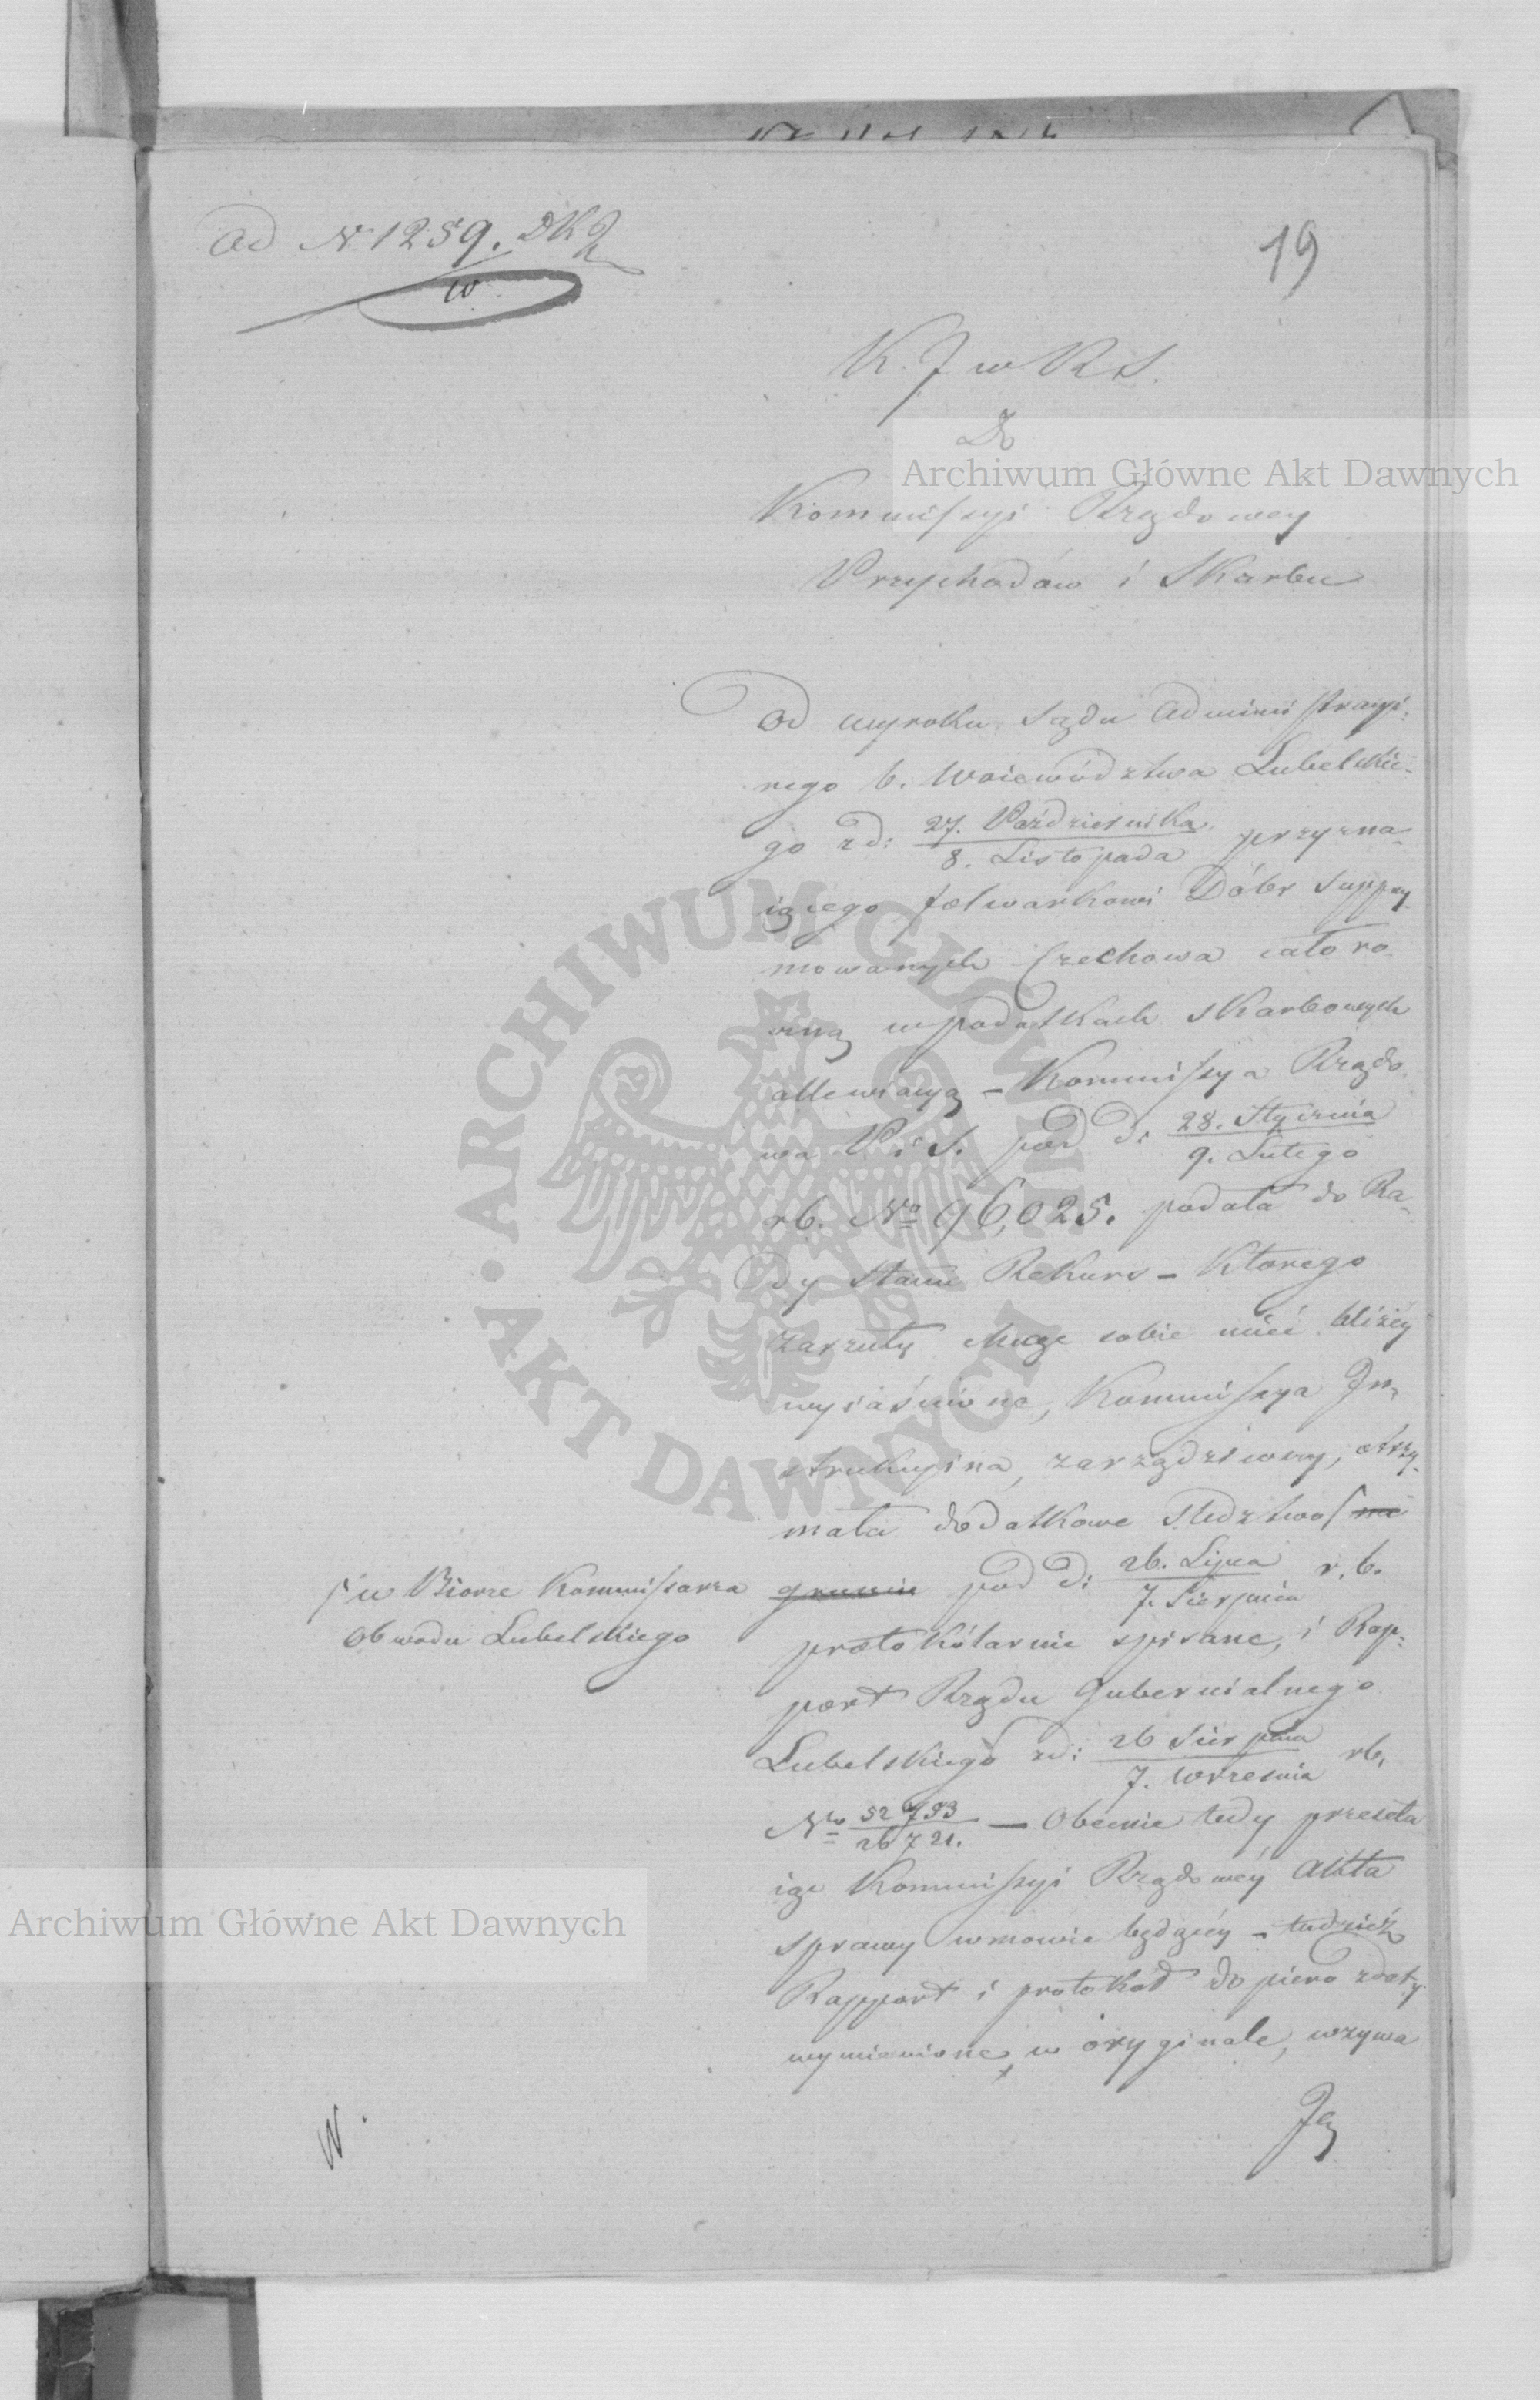 Ad N. 1259. DKJ
w
19
K. J. w. R. S.
Do
Kommissyi Rządowey
Przychodów i Skarbu
Od wyroku Sądu Administracyi-
nego b. Woiewództwa Lubelskie-
go z d: 27. Października / 8. Listopada przyzna-
iącego folwarkowi Dóbr suppry-
mowanych Czechowa cało ro-
czną w podatkach skarbowych
allewiacyą – Kommissya Rządo-
wa P. i S. pod d: 28. Stycznia / 9. Lutego
rb. No 96,025. podała do Ra-
dy Stanu Rekurs – Którego
zarzuty chcąc sobie mieć bliżey
wyiaśnione, Kommissya In-
strukcyina, zarządziwszy, otrzy-
mała dodatkowe śledztwo na
gruncie pod d: 26. Lipca / 7. Sierpnia r. b.
w Biorze Kommissarza
Obwodu Lubelskiego
protokólarnie spisane, i Rap-
port Rządu Gubernialnego
Lubelskiego z d: 26 Sierpnia / 7. Września rb.
No 52793 / 26721. — Obecnie tedy przesyła
iąc Kommissyi Rządowéy Akta
sprawy w mowie będącéy – tudzież
Rapport i protokół dopiero z daty
wymienione w oryginale, wzywa
Ją
W.
Archiwum Główne Akt Dawnych
Archiwum Główne Akt Dawnych
ARCHIWUM GŁÓWNE AKT DAWNYCH